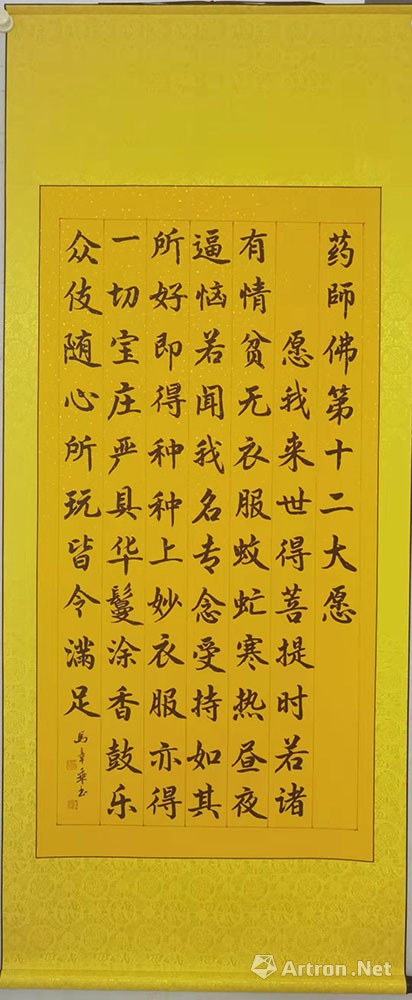 药師佛第十二大愿
愿我来世得菩提时若诸
有情贫无衣服蚊虻寒热昼夜
逼恼若闻我名专念受持如其
所好即得种种上妙衣服亦得
一切宝庄严具华鬘涂香鼓乐
众伎随心所玩皆令满足
Artron.Net